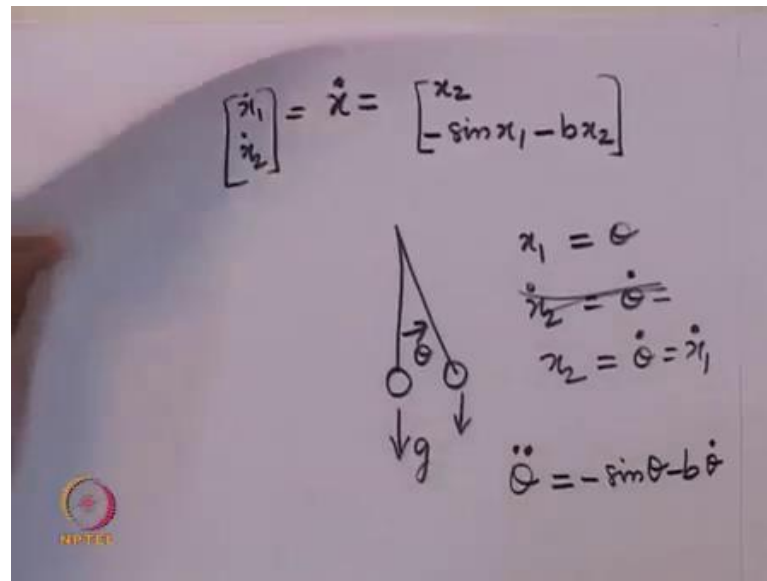 [ẋ₁
ẋ₂] = ẋ = [x₂
- sin x₁ - bx₂]
x₁ = θ
ẋ₂ = θ̇ =
x₂ = θ̇ = ẋ₁
θ
g
θ̈ = - sin θ - b θ̇
NPTEL